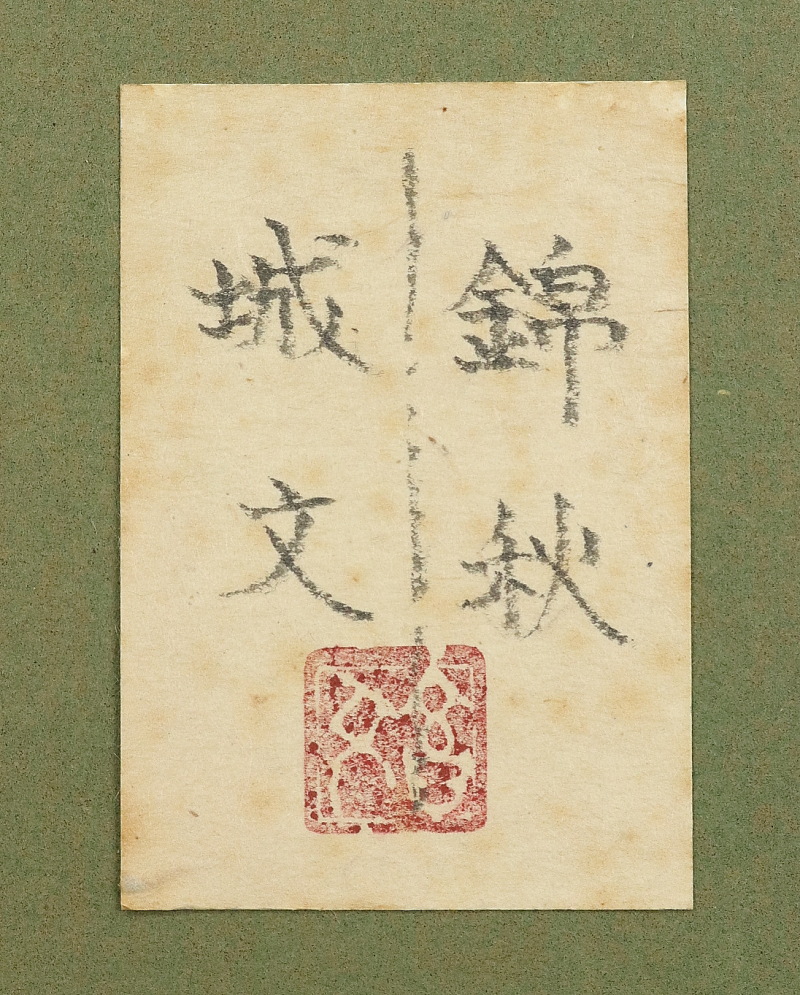 錦秋
城文